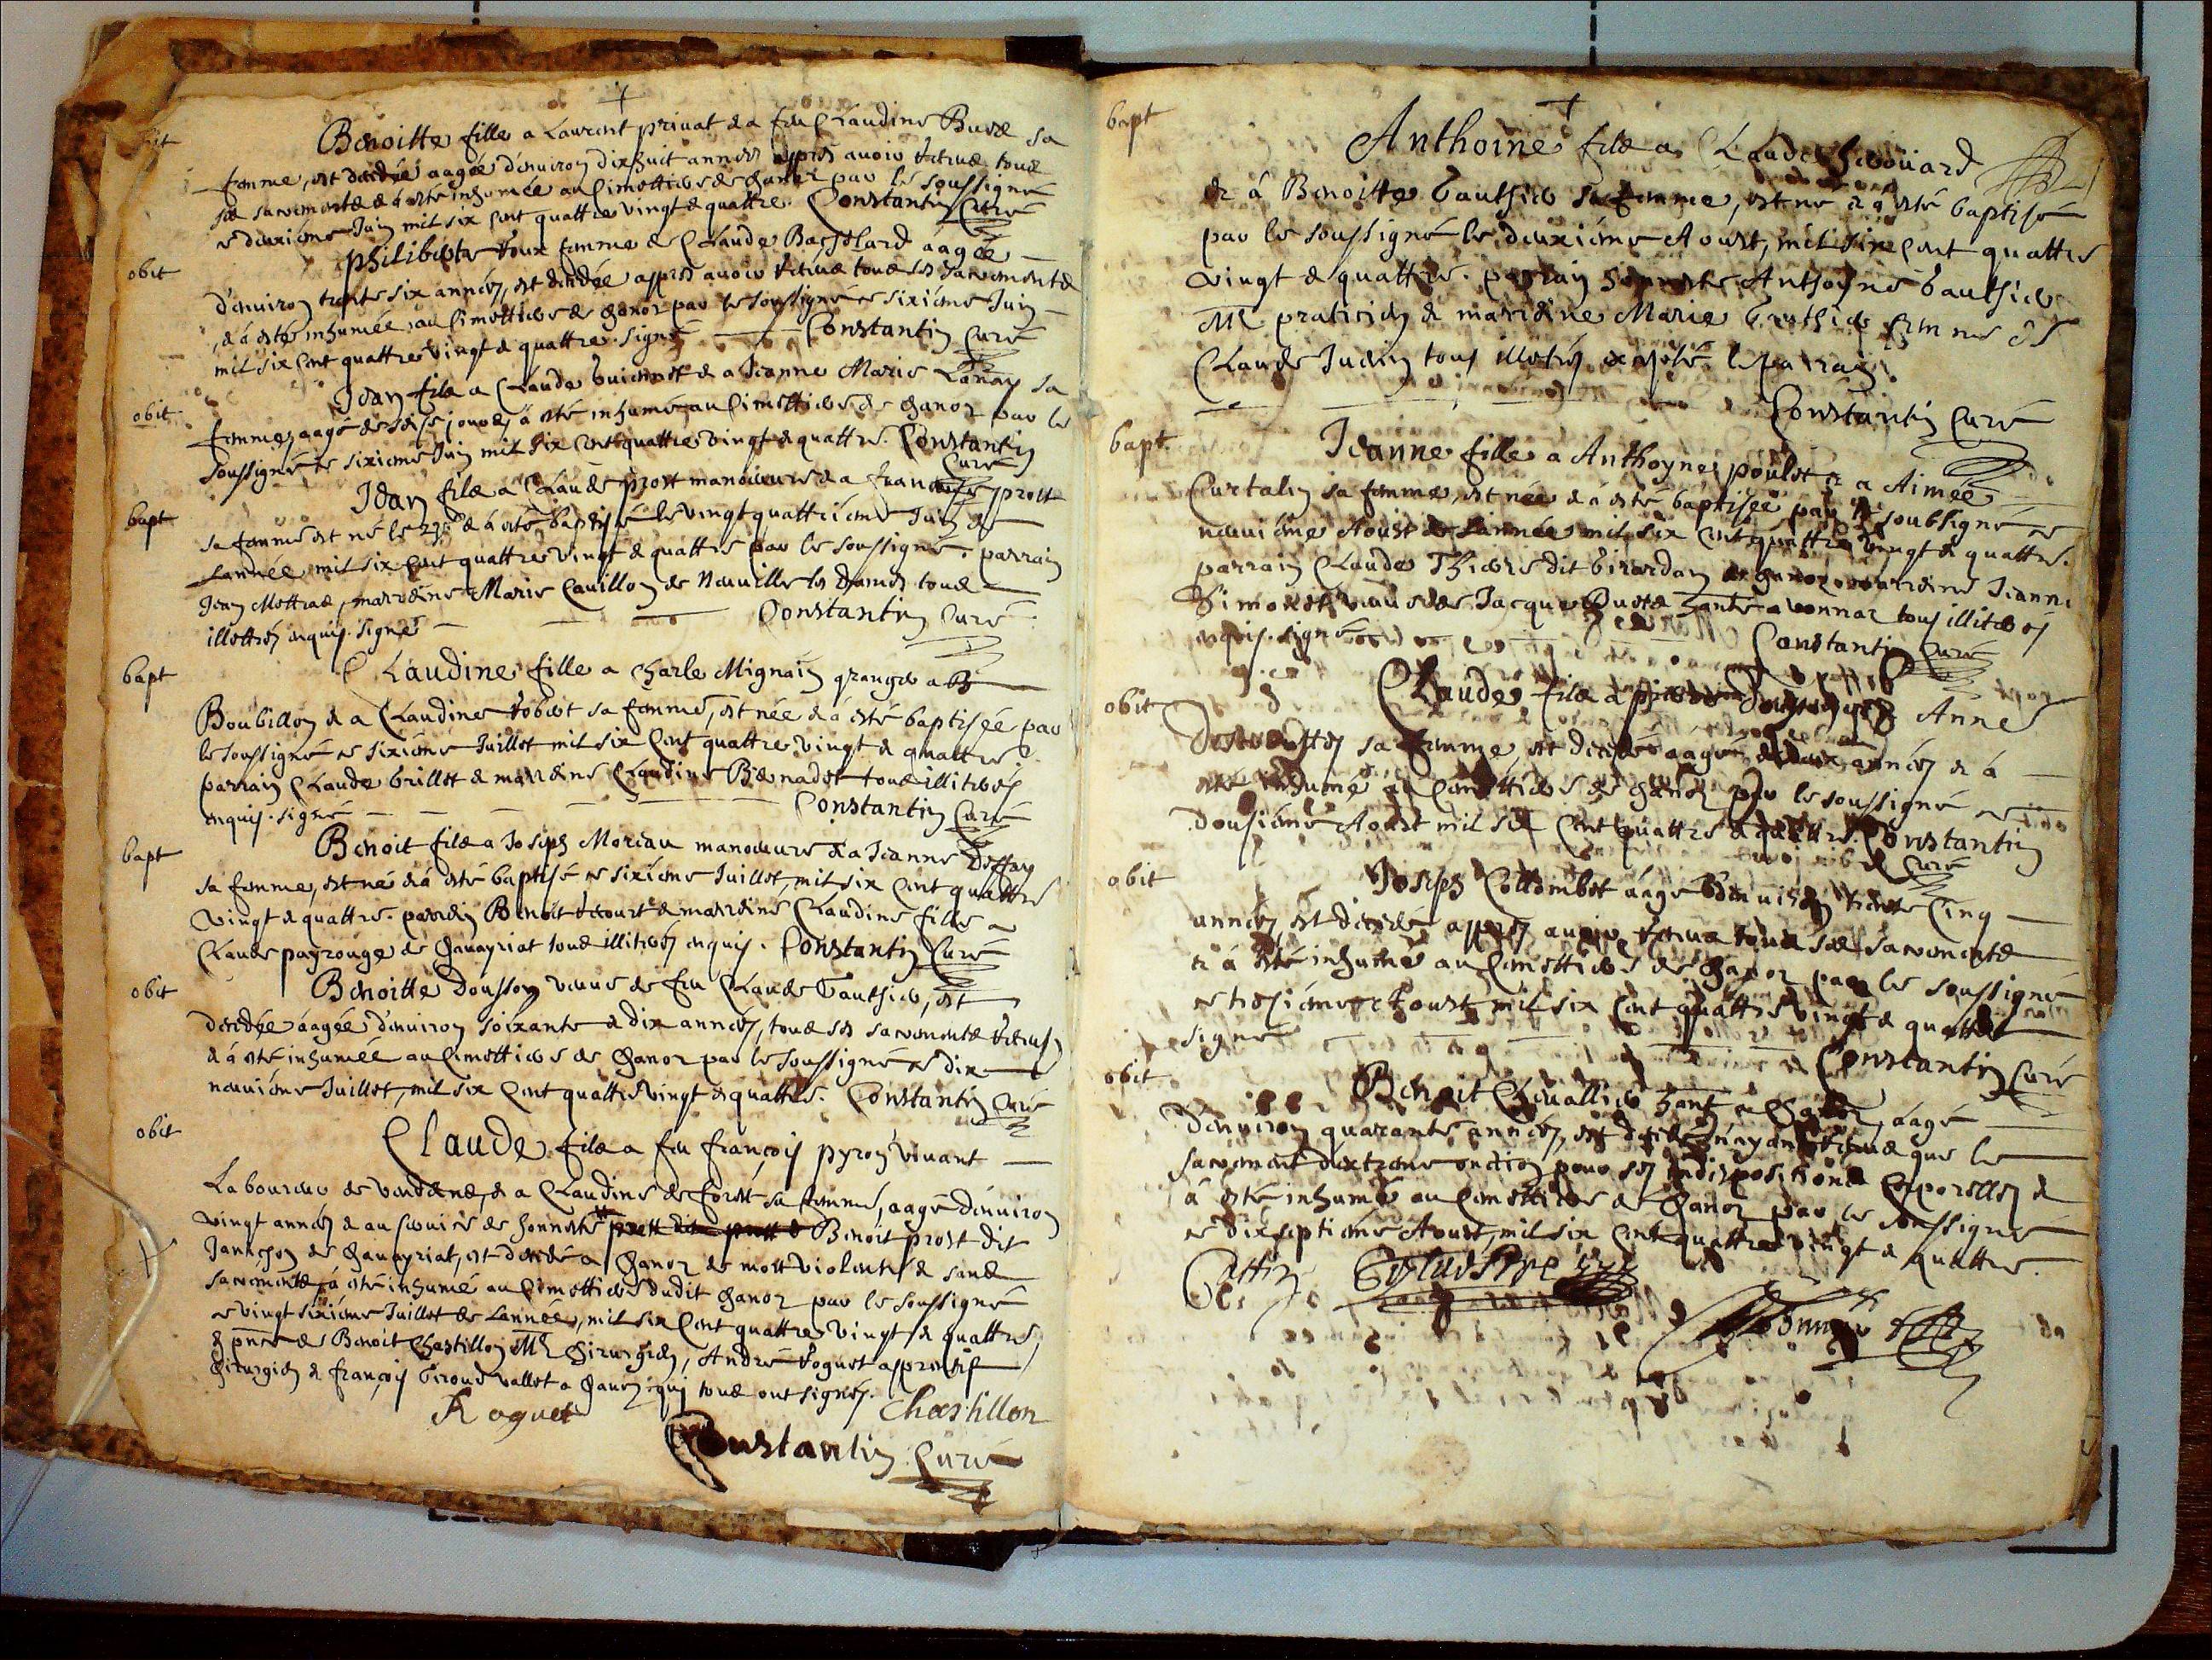 obit
Benoitte fille a Laurent privat & a feu Claudine Buose sa
femme, est decedée aagée d'environ dixhuit années appres avoir receus tous
ses sacrements & á esté inhumée au Cimettiere de Chanoz par le soussigné
ce deuxiéme Juin mil six Cent quattre vingt & quattre. Constantin Curé
obit
Philiberte Roux femme de Claude Bacholard aagée
d'environ trente six années, est decedée appres avoir receus tous ses sacrements
& á esté inhumée au Cimettiere de Chanoz par le soussigné ce sixiéme Juin
mil six Cent quattre vingt & quattre. signé Constantin Curé
obit
Jean fils a Claude & a Jeanne Marie Lanay sa
femme, aagé de seise jours á esté inhumé au Cimettiere de Chanoz par le
soussigné ce sixiéme Juin mil six Cent quattre vingt & quattre. Constantin
Curé
bapt
Jean fils a Claude prost manoeuvre & a francoise prost
sa femme est né le 23e & á esté baptisé le vingt quattriéme Juin de
Lannée mil six Cent quattre vingt & quattre par le soussigné. parrain
Jean Mottras, marreine Marie Cavillon de Neuville les dames tous
illettrés enquis. signé Constantin Curé
bapt
Claudine fille a Charle Mignain granger a
Boubillon & a Claudine Robert sa femme, est née & á esté baptisée par
le soussigné ce sixiéme Juillet mil six Cent quattre vingt & quattre.
parrain Claude brillet & marreine Claudine Bernadet tous illiterés
enquis. signé Constantin Curé
bapt
Benoit fils a Joseph Moreau manoeuvre & a Jeanne Deffay
sa femme, est né & á esté baptisé ce sixiéme Juillet, mil six Cent quattre
vingt & quattre. parrein Benoit & marreine Claudine fille a
Claude payrouge de Chaveyriat tous illiterés enquis. Constantin Curé
obit
Benoitte Dousson veuve de feu Claude Gauthier, est
decedée áagée d'environ soixante & dix années, tous ses sacrements receus,
& á esté inhumée au Cimettiere de Chanoz par le soussigné ce dix
neuviéme Juillet, mil six Cent quattre vingt & quattre. Constantin Curé
obit
Claude fils a feu françois pyron vivant
Laboureur de & a Claudine de forest sa femme, aagé d'environ
vingt années & au service de honneste Benoit prost dit
Janichon de Chaveyriat, est decedé a Chanoz de mort violente & sans
sacrements, á esté inhumé au Cimettiere dudit Chanoz par le soussigné
ce vingt sixiéme Juillet de Lannée, mil six Cent quattre vingt & quattre,
& pnce de Benoit Chastillon Me Chirurgien, André Roguet apprentif
Chirurgien & françois Giroud vallet a Chanoz qui tous ont signés.
Roguet Chastillon
Constantin Curé
bapt
Anthoine fils a Claude
& á Benoitte Gauthier sa femme, est né & á esté baptisé
par le soussigné le deuxiéme Aoust, mil six Cent quattre
vingt & quattre. parrain honneste Anthoyne Gauthier
Me praticien & marreine Marie Gauthier femme de
Claude Juenin tous illetrés excepté le parrain.
Constantin Curé
bapt
Jeanne fille a Anthoyne poulet & a Aimée
Curtalin sa femme, est née & á esté baptisée par le soubsigné ce
neuviéme Aoust de Lannée mil six Cent quattre vingt & quattre.
parrain Claude Thiers dit Girardan de Chanoz marreine Jeanne
Simonet veuve de Jacque a vonnaz tous illiterés
enquis. signé Constantin Curé
obit
Claude fils a pierre & Anne
sa femme, est decedé aagé de deux années & á
esté inhumé au Cimettiere de Chanoz par le soussigné ce
dousiéme Aoust mil six Cent quattre & quattre. Constantin
Curé
obit
Joseph Collombet aagé d'environ trente Cinq
années, est decedé appres avoir receus tous ses sacrements
& á esté inhumé au Cimettiere de Chanoz par le soussigné
ce tresiéme Aoust mil six Cent quattre vingt & quattre
signé Constantin Curé
obit
Benoit Chevallier a Chanoz, aagé
d'environ quarante années, est decedé n'ayant receus que le
sacrement dextreme onction pour ses indispositions Corporelles &
á esté inhumé au Cimettiere de Chanoz par le soussigné
ce dixseptiéme Aoust, mil six Cent quattre vingt & quattre.